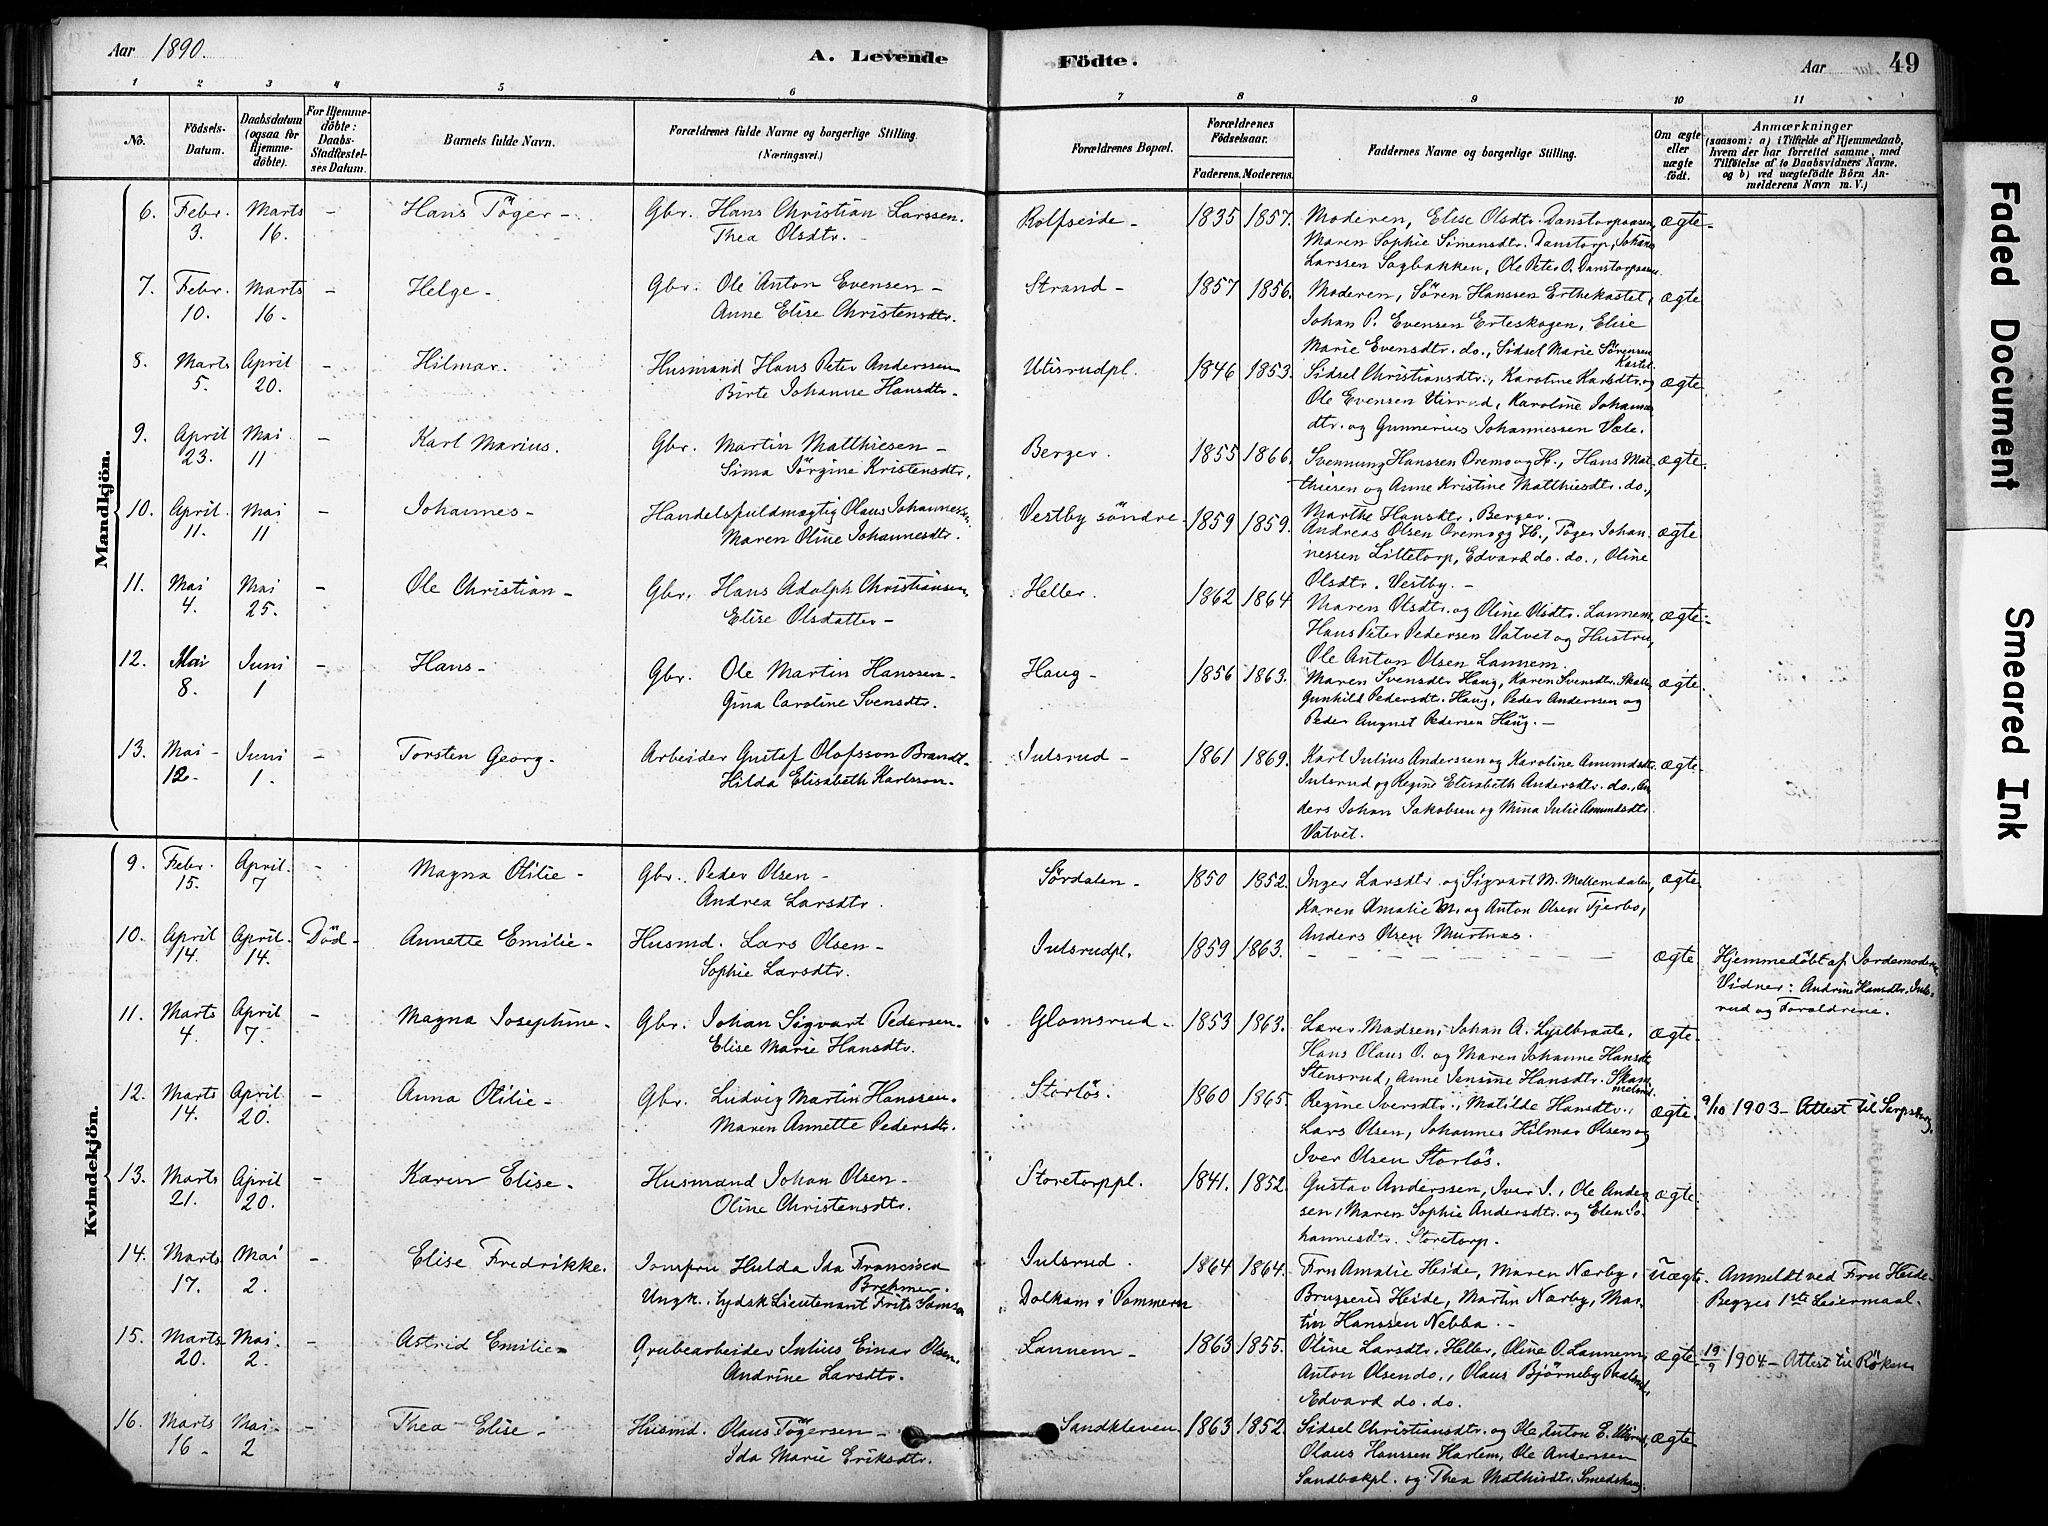 Aar 1890.
A. Levende Födte.
Aar 49
1 2 3 4 5 6 7 8 9 10 11
No.
Födsels-Datum.
Daabsdatum (ogsaa for Hjemmedöbte).
For Hjemmedöbte: Daabs-Stadfæstelses Datum.
Barnets fulde Navn.
Forældrenes fulde Navne og borgerlige Stilling. (Næringsvei.)
Forældrenes Bopæl.
Forældrenes Födselsaar.
Faderens. Moderens.
Faddernes Navne og borgerlige Stilling.
Om ægte eller uægte födt.
Anmærkninger
(saasom: a) i Tilfælde af Hjemmedaab, hvem der har forrettet samme, med Tilföielse af to Daabsvidners Navne, og b) ved uægtefödte Börn Anmelderens Navn m. V.)
Mandkjön.
6. Febr. 3. Marts 16. - Hans Töger - Gbr. Hans Christian Larssen. Rolfseide - 1835 1857. Moderen, Elise Olsdtr. Danstorpaasen, ægte.
Thea Olsdtr. - Maren Sophie Simensdtr. Danstorp, Johan
Larssen Sagbakken, Ole Peter O. Danstorpaasen.
7. Febr. 10. Marts 16. - Helge - Gbr. Ole Anton Evensen - Strand - 1857 1856. Moderen, Sören Hanssen Erthekastet, ægte
Anne Elise Christensdtr. Johan P. Evensen Erteskogen, Elise
Marie Evensdtr. do., Sidsel Marie Sörensen Kastet.
8. Marts 5. April 20. - Hilmar. Husmand Hans Peter Anderssen Utisrudpl. 1846 1853. Sidsel Christiansdtr., Karoline Karlsdtr. og ægte
Birte Johanne Hansdtr. - Ole Evensen Utisrud, Karoline Johannes
dtr. og Gunnerius Johannessen Væle.
9. April 23. Mai 11 - Karl Marius. Gbr. Martin Matthiesen - Berger. 1855 1866. Svennung Hanssen Oremo og H., Hans Mat- ægte.
Sima Jörgine Kristensdtr. thiesen og Anne Kristine Matthiesdtr. do.,
Marthe Hansdtr. Berger.
10. April. 11. Mai 11 - Johannes - Handelsfuldmægtig Olaus Johannessen. Vestby söndre - 1859 1859. Andreas Olsen Oremo og H., Töger Johan- ægte
Maren Oline Johannesdtr. nessen Littetorp, Edvard do. do., Oline
Olsdtr. Vestby. -
11. Mai 4. Mai 25. - Ole Christian - Gbr. Hans Adolph Christiansen Heller. 1862 1864 Maren Olsdtr. og Oline Olsdtr. Lannem, ægte.
Elise Olsdatter - Hans Peter Pedersen Vatvet og Hustru,
Ole Anton Olsen Lannem.
12. Mai 8. Juni 1 - Hans - Gbr. Ole Martin Hanssen - Haug - 1856 1863. Maren Svensdtr. Haug, Karen Svensdtr. ægte.
Gina Caroline Svensdtr. Gunhild Pedersdtr. Haug, Peder Anderssen og
Peder August Pedersen Haug. -
13. Mai - 12. Juni 1 - Torsten Georg - Arbeider Gustaf Olofsson Brandt. Julsrud - 1861 1869. Karl Julius Anderssen og Karoline Amundsdtr. ægte.
Hilda Elisabeth Karlsson - Julsrud og Regine Elisabeth Andersdtr. do., An
ders Johan Jakobsen og Mina Julie Amundsdtr.
Vatvet.
Kvindekjön.
9. Febr. 15. April 7 - Magna Otilie - Gbr. Peder Olsen - Sördalen - 1850 1852. Inger Larsdtr. og Sigvart M. Mellemdalen, ægte.
Andrea Larsdtr. Karen Amalie M. og Anton Olsen Tjerbo,
Anders Olsen Murtnæs.
10. April 14. April 14. Död - Annette Emilie - Husmd. Lars Olsen - Julsrudpl. 1859 1863. - - - - - - ægte Hjemmedöbt af Jordemoderen.
Sophie Larsdtr. Vidner: Andrine Hansdtr. Juls-
rud og Forældrene.
11. Marts 4. April 7. - Magna Josephine - Gbr. Johan Sigvart Pedersen. Glomsrud - 1853 1863. Lærer Madsen, Johan A. Lyslbraate, ægte.
Elise Marie Hansdtr. Hans Olaus O. og Maren Johanne Hansdtr.
Stensrud, Anne Jensine Hansdtr.
12. Marts 14. April 20. - Anna Otilie - Gbr. Ludvig Martin Hanssen. Storlös. 1860 1865. Regine Iversdtr., Matilde Hansdtr., ægte. 9/10 1903 - Attest til Sarpsborg.
Maren Annette Pedersdtr. Lars Olsen, Johannes Hilmar Olsen og
Iver Olsen Storlös.
13. Marts 21. April 20. - Karen Elise. Husmand Johan Olsen - Storetorppl. 1841. 1852 Gustav Anderssen, Iver I., Ole Anders ægte.
Oline Christensdtr. sen, Maren Sophie Andersdtr. og Elen Jo-
hannesdtr. Storetorp.
14. Marts 17. Mai 2. - Elise Fredrikke. Jomfru Hulda Ida Francisca Brehmer. Julsrud. 1864 1864. Fru Amalie Heide, Maren Nærby, Uægte. Anmeldt ved Fru Heide -
Ungk. tydsk Lieutenant Frits Samsa Dolkam i Pommern Brugseier Heide, Martin Nærby, Mar- Begges 1ste Leiermaal.
tin Hanssen Nebba. -
15. Marts 20. Mai 2. - Astrid Emilie - Grubearbeider Julius Einar Olsen. Lannem - 1863 1855. Oline Larsdtr. Heller, Oline O. Lannem, ægte. 19/9 1904 - Attest til Röken
Andrine Larsdtr. Anton Olsen do., Olaus Björneby
Edvard do. do.
16. Marts 16 - Mai 2 - Thea Elise - Husmd. Olaus Tögersen - Sandkleven 1863 1852. Sidsel Christiansdtr. og Ole Anton E. Utisrud, ægte
Ida Marie Eriksdtr. Olaus Hanssen Harlem, Ole Anderssen
Sandbækpl. og Thea Mathisdtr. Smedshaug.
Faded Document
Smeared Ink